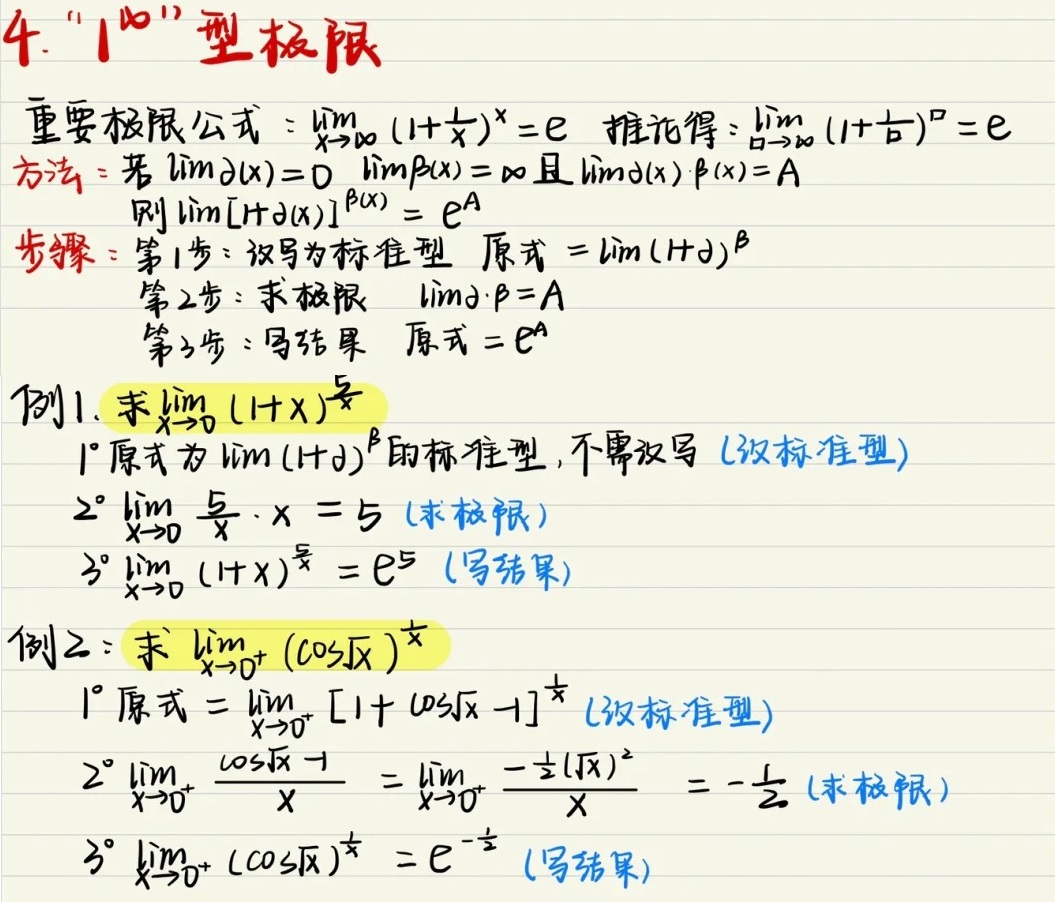 4. "1^∞" 型极限
重要极限公式：lim x→∞ (1+1/x)^x = e 推论得：lim □→∞ (1+1/□)^□ = e
方法：若 lim ∂(x) = 0 lim β(x) = ∞ 且 lim ∂(x)·β(x) = A
则 lim [1+∂(x)]^β(x) = e^A
步骤：第1步：改写为标准型 原式 = lim (1+∂)^β
第2步：求极限 lim ∂·β = A
第3步：写结果 原式 = e^A
例1. 求 lim x→0 (1+x)^(5/x)
1° 原式为 lim (1+∂)^β 的标准型，不需改写（改标准型）
2° lim x→0 5/x · x = 5（求极限）
3° lim x→0 (1+x)^(5/x) = e^5（写结果）
例2：求 lim x→0⁺ (cos√x)^(1/x)
1° 原式 = lim x→0⁺ [1 + cos√x - 1]^(1/x)（改标准型）
2° lim x→0⁺ (cos√x - 1)/x = lim x→0⁺ (-1/2(√x)²)/x = -1/2（求极限）
3° lim x→0⁺ (cos√x)^(1/x) = e^(-1/2)（写结果）